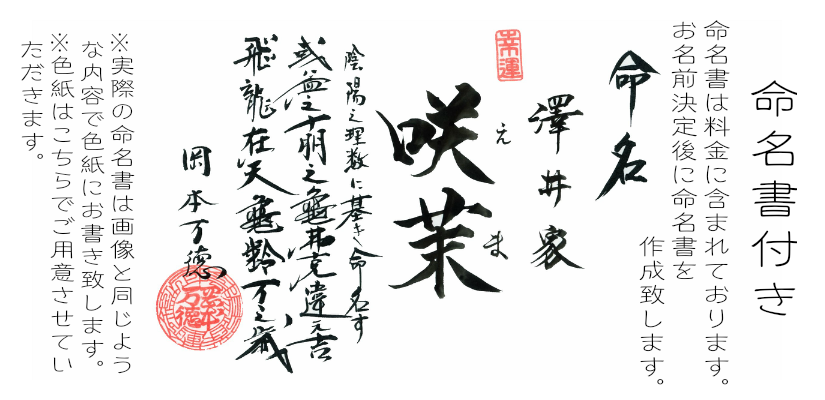 命名書付き
命名書は料金に含まれております。
お名前決定後に命名書を
作成致します。
命名
幸運
澤井家
えま
咲茉
陰陽之理数に基き命名す
或益之十朋之龜弗克違元吉
飛龍在天龜齢万之歳
岡本万徳
※実際の命名書は画像と同じよう
な内容で色紙にお書き致します。
※色紙はこちらでご用意させてい
ただきます。